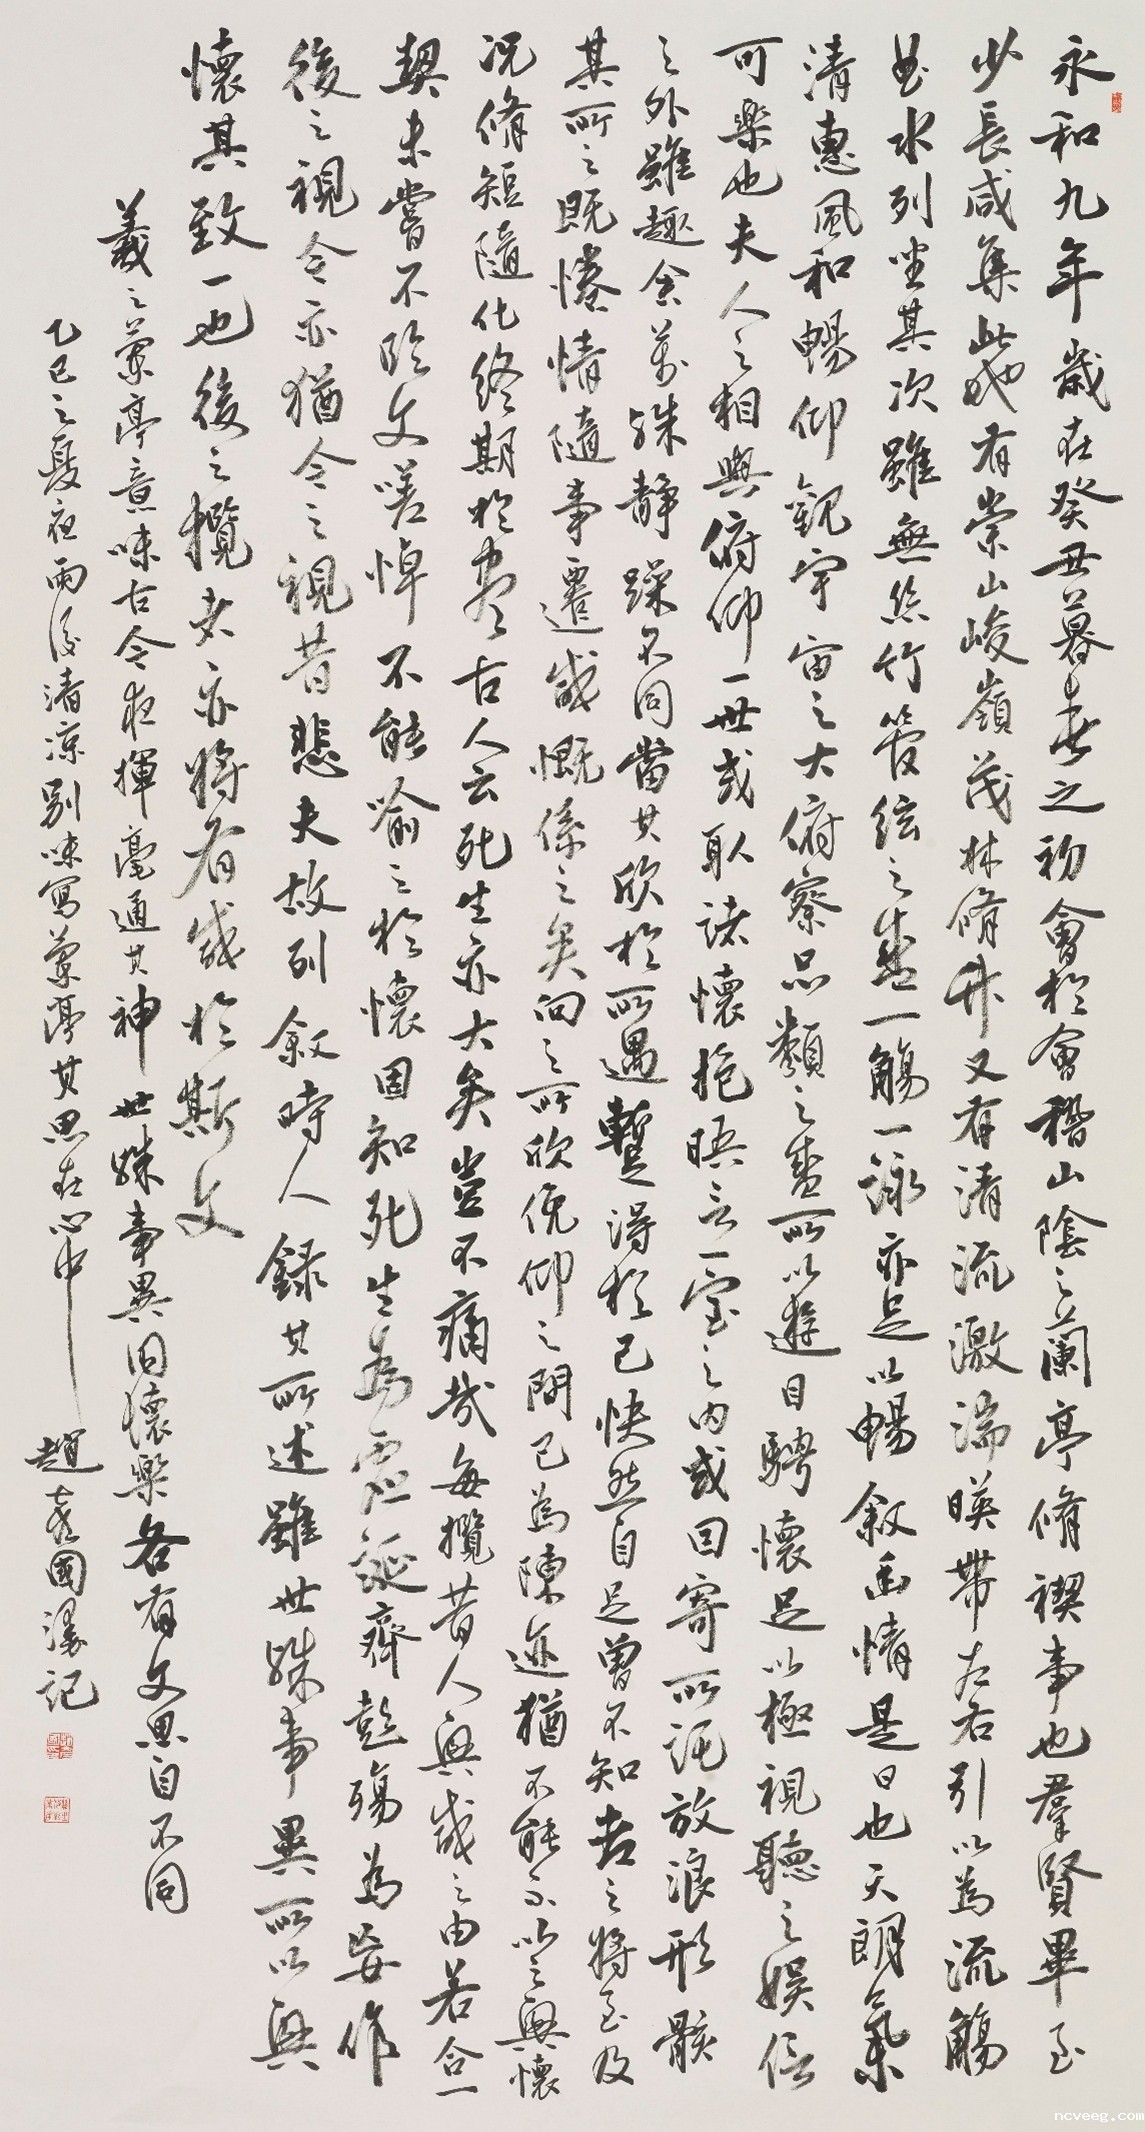 永和九年歲在癸丑暮春之初會於會稽山陰之蘭亭脩禊事也羣賢畢至
少長咸集此地有崇山峻嶺茂林脩竹又有清流激湍暎帶左右引以為流觴
曲水列坐其次雖無絲竹管絃之盛一觴一詠亦足以暢敘幽情是日也天朗氣
清惠風和暢仰觀宇宙之大俯察品類之盛所以遊目騁懷足以極視聽之娛信
可樂也夫人之相與俯仰一世或取諸懷抱晤言一室之內或因寄所託放浪形骸
之外雖趣舍萬殊靜躁不同當其欣於所遇暫得於己快然自足曾不知老之將至及
其所之既惓情隨事遷感慨係之矣向之所欣俛仰之間已為陳迹猶不能不以之興懷
況脩短隨化終期於盡古人云死生亦大矣豈不痛哉每攬昔人興感之由若合一
契未嘗不臨文嗟悼不能喻之於懷固知死生為虛誕齊彭殤為妄作
後之視今亦猶今之視昔悲夫故列敘時人錄其所述雖世殊事異所以興
懷其致一也後之攬者亦將有感於斯文
羲之蘭亭意味古今夜揮毫通其神世殊事異因懷樂各有文思自不同
乙巳之夏夜雨後清涼別味寫蘭亭其思在心中 趙 國 記
ncveeg.com